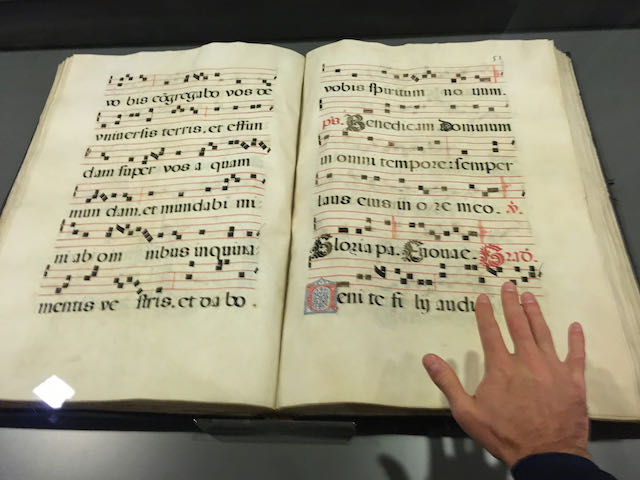 vo bis cōgregabo vos de
vniversis terris. et effun
dam super vos a quam
mun dam. et mundabi mi
ni ab om nibus inquina
mentis ve stris. et da bo.
51
vobis spiritum no uum.
ps. Benedicam Dominum
in omni tempore: semper
laus eius in o re meo. ℣.
Gloria pa. Euouae. Grad.
Ueni te fi lij audi